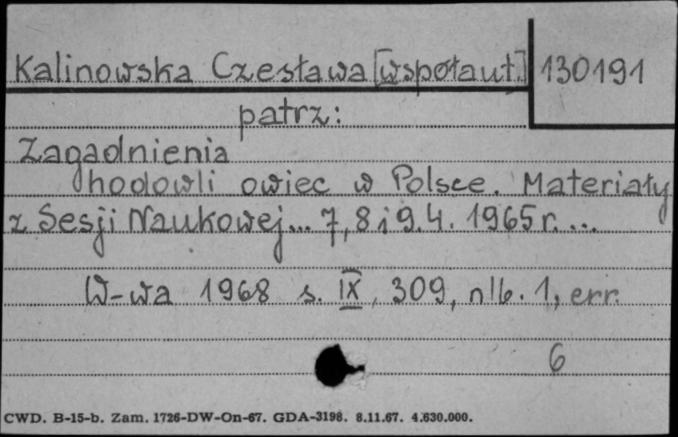 Kalinowska Czesława [współaut.] 130191
patrz:
Zagadnienia
hodowli owiec w Polsce. Materiały
z Sesji Naukowej... 7, 8 i 9.4. 1965 r. ...
W-wa 1968 s. IX, 309, nlb. 1, err.
6
CWD. B-15-b. Zam. 1726-DW-On-67. GDA-3198. 8.11.67. 4.630.000.